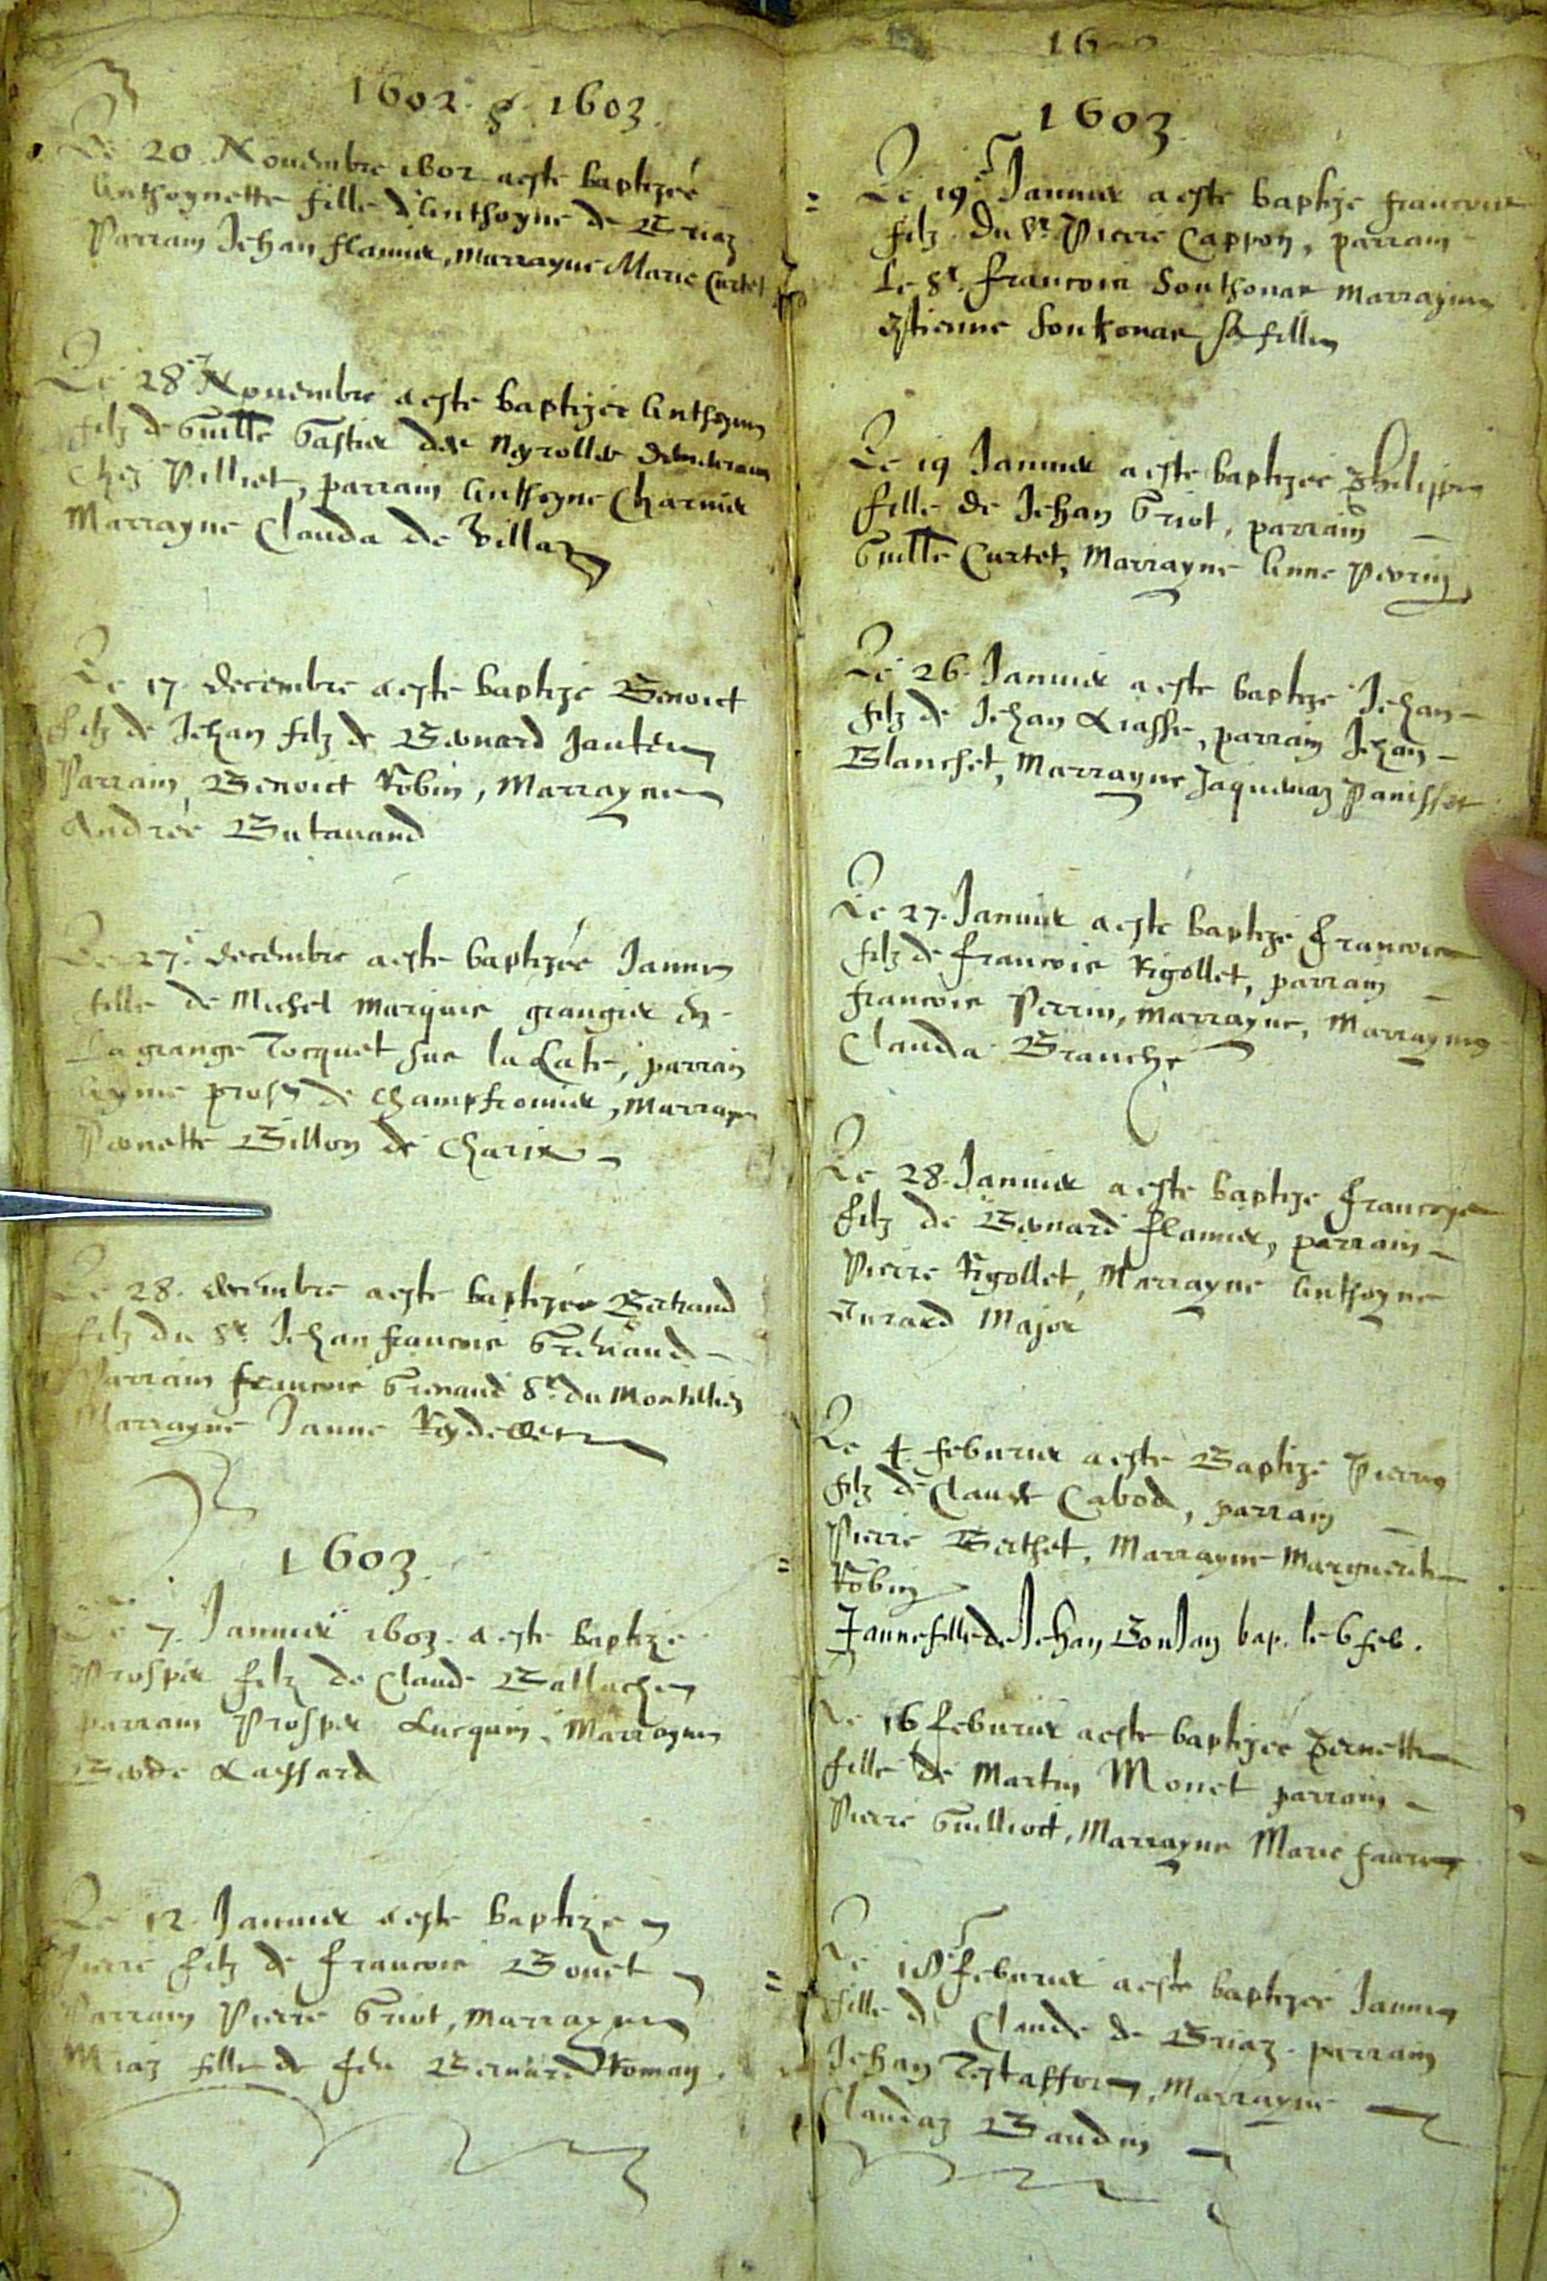 1602. & 1603.
Le 20 Novembre 1602 a este baptizée
Anthoynette fille d'Anthoyne de
Parrain Jehan flamier, marrayne Marie Curtet
Le 28e Novembre a este baptizée Anthoyne
filz de Guille Gastier des Neyrolles demeurant
chez Pilliet, parrain Anthoyne Charnier
Marrayne Clauda de Villaz
Le 17. decembre a este baptizé Benoict
filz de Jehan filz de Bernard Jantet
Parrain, Benoict Robin, Marrayne
Andrée Butavand
Le 27e decembre a este baptizée Janne
fille de Michel Marquis grangier en
La grange Tocquet sur la Late, parrain
Ayme prost de Champfromier, Marrayne
Pernette Billon de Charix
Le 28. decembre a este baptizée Bertrand
filz du Sr. Jehan francois Grenaud
Parrain francois Grenaud Sr. du Montillied
Marrayne Janne Reydellet
1603.
Le 7. Januier 1603. a este baptizé
Prosper filz de Claude Ballache
parrain Prosper Lucquin, Marrayne
Bernde Lassard
Le 12. Januier a este baptize
Pierre filz de francois Bonet
Parrain Pierre Griot, Marrayne
Miaz fille de feu Bernard Romain.
1603.
Le 19e Januier a este baptizé francois
filz du Sr. Pierre Cappon, parrain
Le Sr. francois Southonax Marrayne
Estienne Southonax sa fille
Le 19 Januier a este baptizée Philippe
fille de Jehan Griot, parrain
Guille Curtet, Marrayne Anne Perrin
Le 26. Januier a este baptizé Jehan
filz de Jehan Liasse, parrain Jehan
Blanchet, Marrayne Jaquemaz Panisset
Le 27. Januier a este baptizé francois
filz de francois Rigollet, parrain
francois Perrin, marrayne, Marrayne
Clauda Branche
Le 28. Januier a este baptize francoys
filz de Bernard flamier, parrain
Pierre Rigollet, Marrayne Anthoyne
Aurard Major
Le 4. feburier a este Baptizé Pierre
filz de Claude Cabod, parrain
Pierre Berthet, Marrayne Marguerite
Robin
Janne fille de Jehan Gonjan bap. le 6 feb.
Le 16 feburier a este baptizée Pernette
fille de Martin Monet parrain
Pierre Guilliot, Marrayne Marie faure
Le 18e feburier a este baptizée Janne
fille de Claude de Briaz. parrain
Jehan Testaffort, Marrayne
Claudaz Baudin